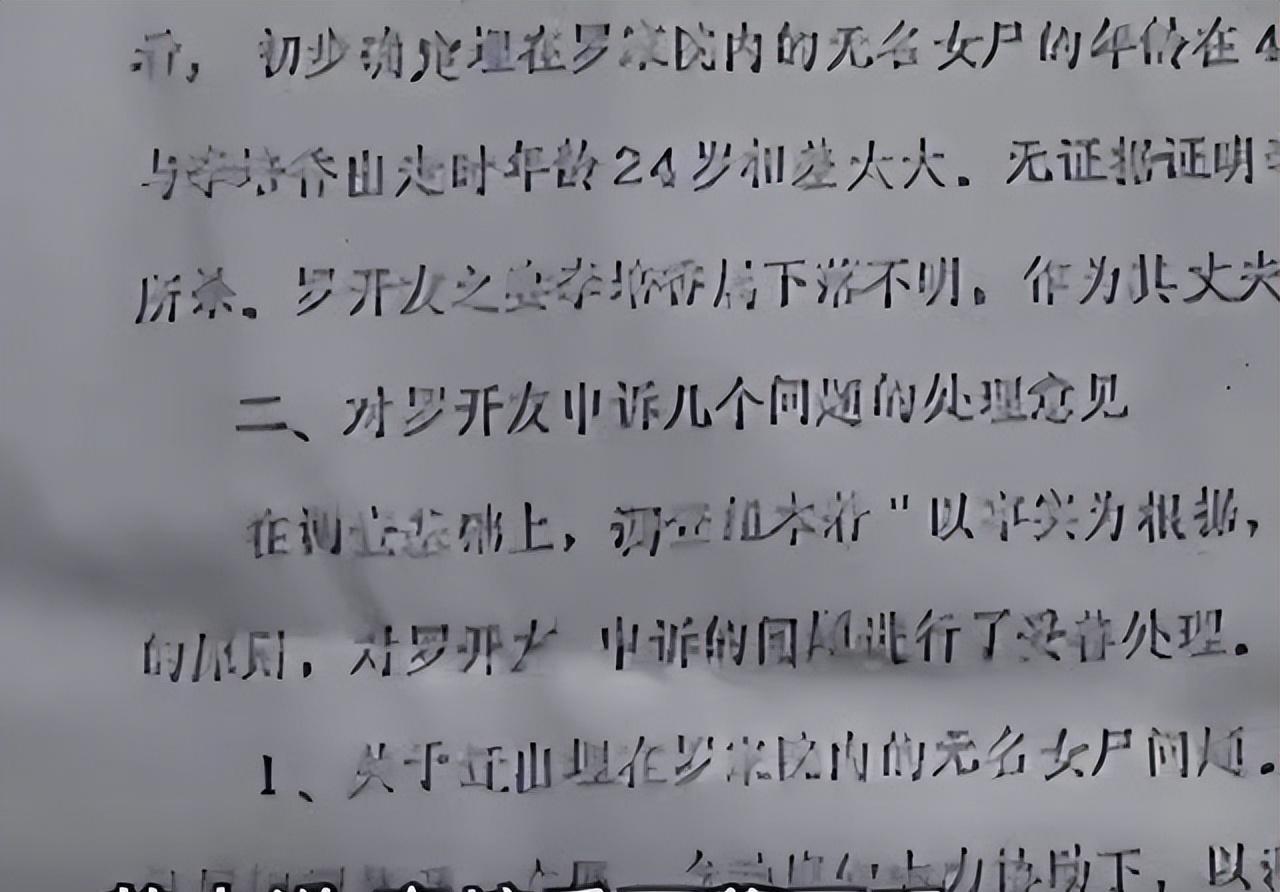 初步确定埋在罗家院内的无名女尸的年龄在4
与李培香出走时年龄24岁相差太大。无证据证明
所杀。罗开友之妻李培香属下落不明。作为其丈夫
二、对罗开友申诉几个问题的处理意见
在调查基础上，调查组本着"以事实为根据，
的原则，对罗开友 申诉的问题进行了妥善处理。
1、关于迁出埋在罗家院内的无名女尸问题。
下，以